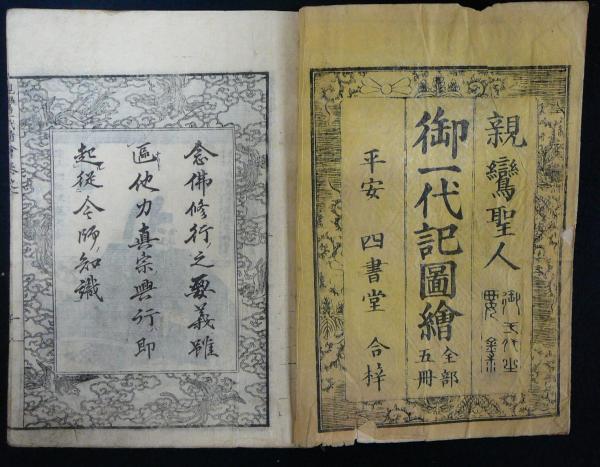 親鸞聖人
御一代記圖繪 全部五冊
平安 四書堂 合梓
念佛修行之要義雖
區他力真宗興行即
起從今師知識